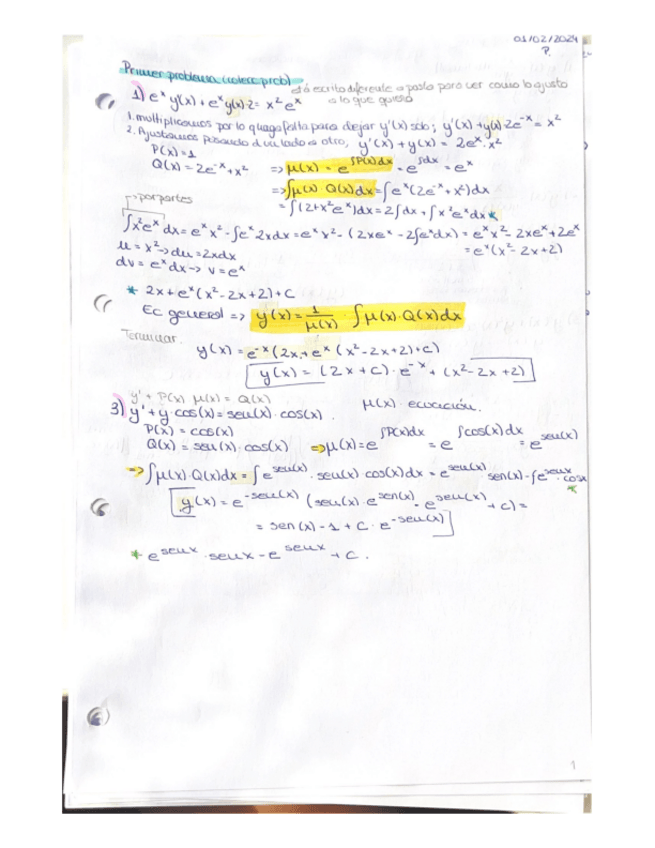 01/02/2024
P.
Primer problema (colecc prob)
está escrito diferente a posta para ver como lo ajusto
a lo que quiero
1) e^x y'(x) + e^x y(x) · 2 = x² e^x
1. multiplicamos por lo que haga falta para dejar y'(x) solo; y'(x) + y(x) · 2e^-x = x²
2. Ajustamos pasando d un lado a otro; y'(x) + y(x) = 2e^-x · x²
P(x) = 1
Q(x) = 2e^-x + x² => μ(x) = e^∫P(x)dx = e^∫dx = e^x
=> ∫μ(x) Q(x)dx = ∫e^x(2e^-x + x²)dx
= ∫(2 + x²e^x)dx = 2∫dx + ∫x²e^x dx *
por partes
∫x²e^x dx = e^x x² - ∫e^x 2xdx = e^x x² - (2xe^x - 2∫e^x dx) = e^x x² - 2xe^x + 2e^x
= e^x(x² - 2x + 2)
u = x² -> du = 2xdx
dv = e^x dx -> v = e^x
* 2x + e^x(x² - 2x + 2) + C
Ec general => y(x) = 1/μ(x) · ∫μ(x) · Q(x)dx
Terminar.
y(x) = e^-x (2x + e^x (x² - 2x + 2) + C)
y(x) = (2x + C) · e^-x + (x² - 2x + 2)
y' + P(x) μ(x) = Q(x)
μ(x) · ecuación.
3) y' + y · cos(x) = sen(x) · cos(x).
P(x) = cos(x)
Q(x) = sen(x) · cos(x) => μ(x) = e^∫P(x)dx = e^∫cos(x)dx = e^sen(x)
=> ∫μ(x) · Q(x)dx = ∫e^sen(x) · sen(x) cos(x)dx = e^sen(x) · sen(x) - ∫e^senx · cosx
*
y(x) = e^-sen(x) (sen(x) · e^sen(x) - e^sen(x) + C) =
= sen(x) - 1 + C · e^-sen(x)
* e^senx · senx - e^senx + C.
1